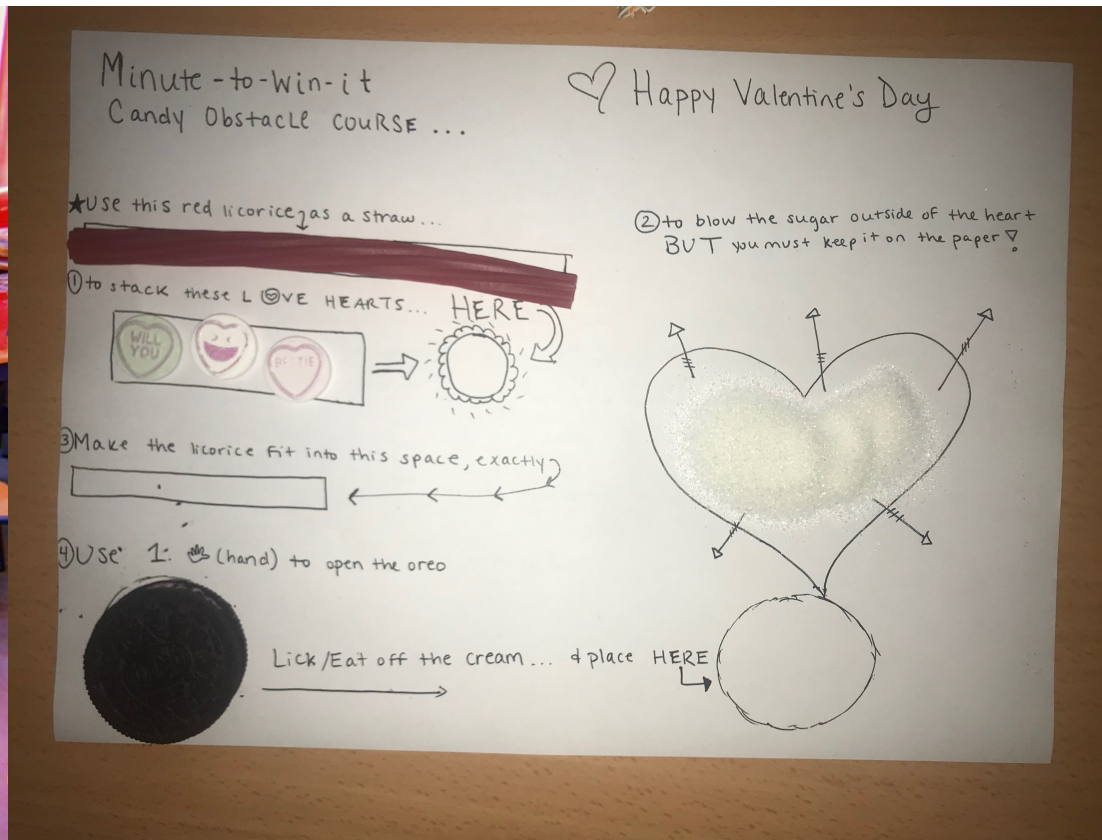 Minute-to-win-it
Candy Obstacle COURSE...
Happy Valentine's Day
★Use this red licorice as a straw...
① to stack these LOVE HEARTS...
HERE
WILL
YOU
② to blow the sugar outside of the heart
BUT you must keep it on the paper!
③ Make the licorice fit into this space, exactly
④ Use 1 (hand) to open the oreo
Lick/Eat off the cream... & place HERE